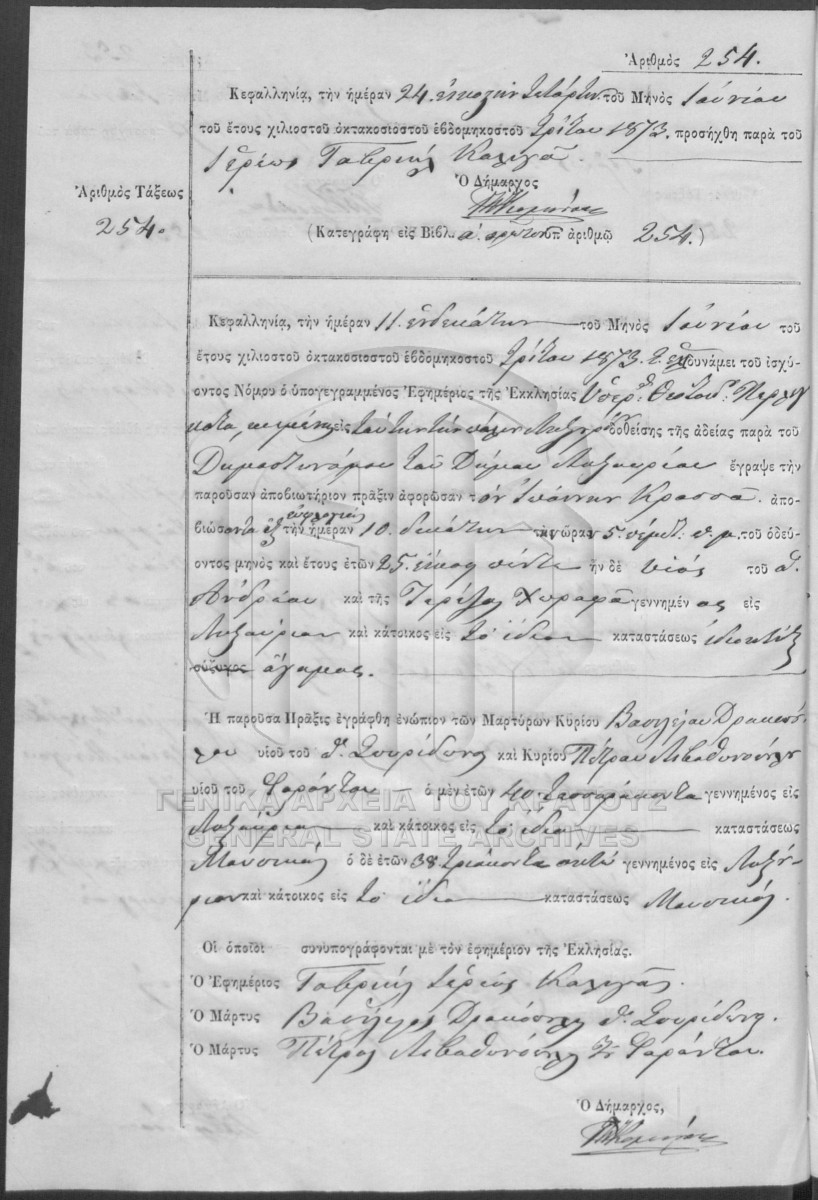 Ἀριθμὸς 254.
Κεφαλληνίᾳ, τὴν ἡμέραν 24. εἰκοστὴν τετάρτην τοῦ Μηνὸς Ἰουνίου
τοῦ ἔτους χιλιοστοῦ ὀκτακοσιοστοῦ ἑβδομηκοστοῦ τρίτου 1873. προσήχθη παρὰ τοῦ
Ἱερέως Γαβριὴλ Καλιγᾶ.
Ὁ Δήμαρχος
Ἀριθμὸς Τάξεως
254.
(Κατεγράφη εἰς Βιβλ. α. πρῶτον ὑπ' ἀριθμῷ 254.)
Κεφαλληνίᾳ, τὴν ἡμέραν 11. ἑνδεκάτην τοῦ Μηνὸς Ἰουνίου τοῦ
ἔτους χιλιοστοῦ ὀκτακοσιοστοῦ ἑβδομηκοστοῦ τρίτου 1873. δυνάμει τοῦ ἰσχύ-
οντος Νόμου ὁ ὑπογεγραμμένος Ἐφημέριος τῆς Ἐκκλησίας Ὑπερ: Θεοτόκ:
εἰς ταύτην τὴν πόλιν Ληξούρ δοθείσης τῆς ἀδείας παρὰ τοῦ
Δημαστυνόμου τοῦ Δήμου Ληξουρίου ἔγραψε τὴν
παροῦσαν ἀποβιωτήριον πρᾶξιν ἀφορῶσαν τὸν Ἰωάννην Κρασσᾶ. ἀπο-
βιώσαντα τὴν ἡμέραν 10. δεκάτην τὴν ὥραν 5. πέμπτ: π. μ. τοῦ ὁδεύ-
οντος μηνὸς καὶ ἔτους ἐτῶν 25. εἴκοσι πέντε ἦν δὲ υἱὸς τοῦ π.
Ἀνδρέου καὶ τῆς Τερέζας Χωραφᾶ γεννημένος εἰς
Ληξούριον καὶ κάτοικος εἰς τὸ ἴδιον καταστάσεως ἰδιοκτήτ
σύζυγος ἄγαμος.
Ἡ παροῦσα Πρᾶξις ἐγράφθη ἐνώπιον τῶν Μαρτύρων Κυρίου Βασιλείου Δρακοπ-
ούλου υἱοῦ τοῦ π. Σπυρίδωνος καὶ Κυρίου Πέτρου Λιβαθυνόπουλου
υἱοῦ τοῦ Φαράντου ὁ μὲν ἐτῶν 40. τεσσαράκοντα γεννημένος εἰς
Ληξούριον καὶ κάτοικος εἰς τὸ ἴδιον καταστάσεως
Μουσικὸς ὁ δὲ ἐτῶν 38 τριάκοντα ὀκτὼ γεννημένος εἰς Ληξού-
ριον καὶ κάτοικος εἰς τὸ ἴδιον καταστάσεως Μουσικός.
Οἱ ὁποῖοι συνυπογράφονται μὲ τὸν ἐφημέριον τῆς Ἐκλησίας.
Ὁ Ἐφημέριος Γαβριὴλ Ἱερεὺς Καλιγᾶς.
Ὁ Μάρτυς Βασίλειος Δρακόπουλος π. Σπυρίδωνος.
Ὁ Μάρτυς Πέτρος Λιβαθυνόπουλος Φαράντου.
Ὁ Δήμαρχος,
ΓΕΝΙΚΑ ΑΡΧΕΙΑ ΤΟΥ ΚΡΑΤΟΥΣ
GENERAL STATE ARCHIVES